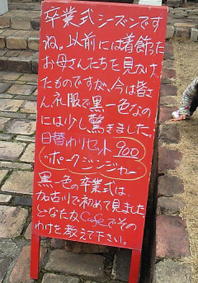 卒業式シーズンです
ね。以前には着飾った
お母さんたちを見かけ
たものですが、今は皆さ
ん、礼服で黒一色なの
には少し驚きました。
日替わりセット 900
ポークジンジャー
黒一色の卒業式は、
加古川で初めて見ました
どなたか、Cafeでその
わけを教えて下さい。